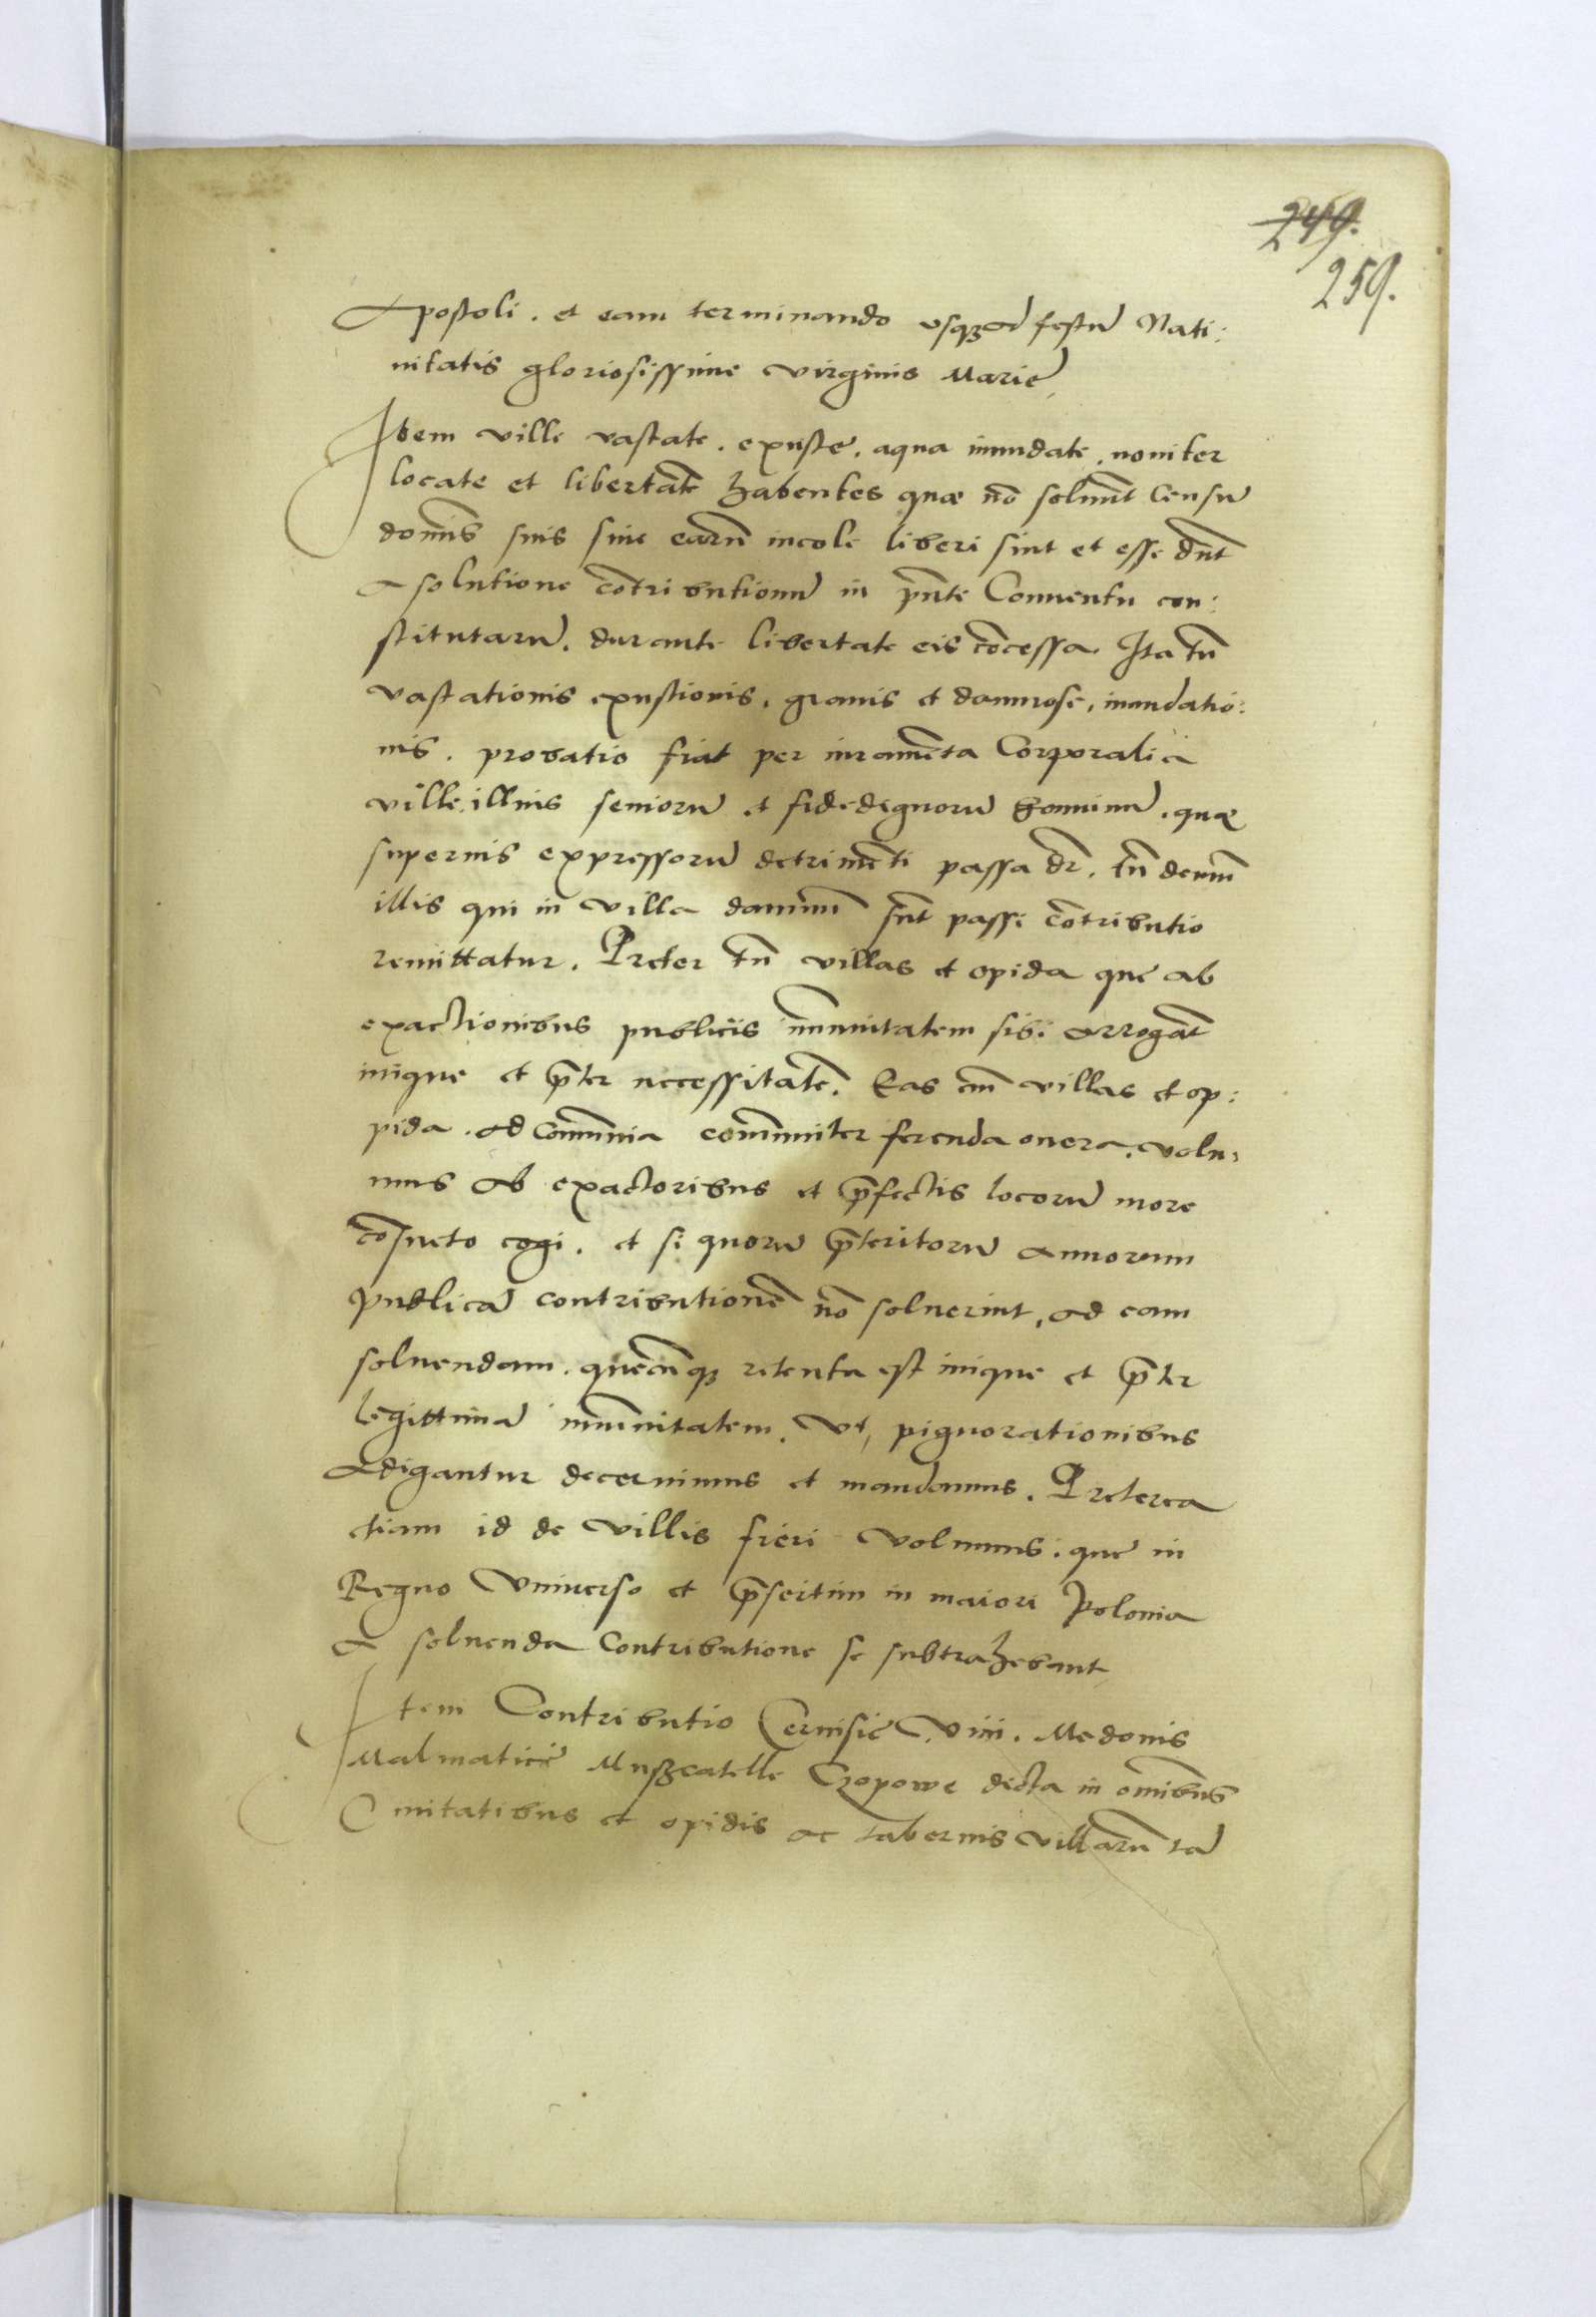 249.
259.
Apostoli . et eam terminando usqꝫ ad festū Nati:
uitatis gloriosissime virginis Marie
Item ville vastate . exuste . aqua inundate . nouiter
locate et libertatē habentes quæ nō soluūt Censū
domīs suis siue earū incole liberi sint et esse dn̄t
a solutione cōtributionū in pn̄te Conuentu con:
stitutarū . durante libertate eis cōcessa Ita tn̄
vastationis exustionis , grauis et damnose , inundatio:
nis . probatio fiat per iuramēta Corporalia
ville illius seniorū et fidedignorū hominū . quæ
superius expressorū detrimēti passa dr̄ . tn̄ demū
illis qui in villa damnū sūt passi cōtributio
remittatur . Preter tn̄ villas et opida que ab
exactionibus publicis īmunitatem sibi arrogāt
inique et p̄ter necessitatē . Eas em̄ villas et op:
pida . ad Cōmunia cōmuniter ferenda onera . volu:
mus ab exactoribus et p̄fectis locorū more
cōsueto cogi . et si quorū p̄teritorū annorum
publicā contributionē nō soluerint , ad eam
soluendam . quecūqꝫ retenta est inique et p̄ter
legittimā īmunitatem . Vt , pignorationibus
adigantur decernimus et mandamus . Preterea
etiam id de villis fieri volumus . que in
Regno Vniuerso et p̄sertim in maiori Polonia
a soluenda Contributione se subtrahebant
Item Contributio Ceruisie . Vini . Medonis
Malmatice Muszcatelle Czopowe dicta in omībus
Ciuitatibus et opidis ac tabernis villarū tā